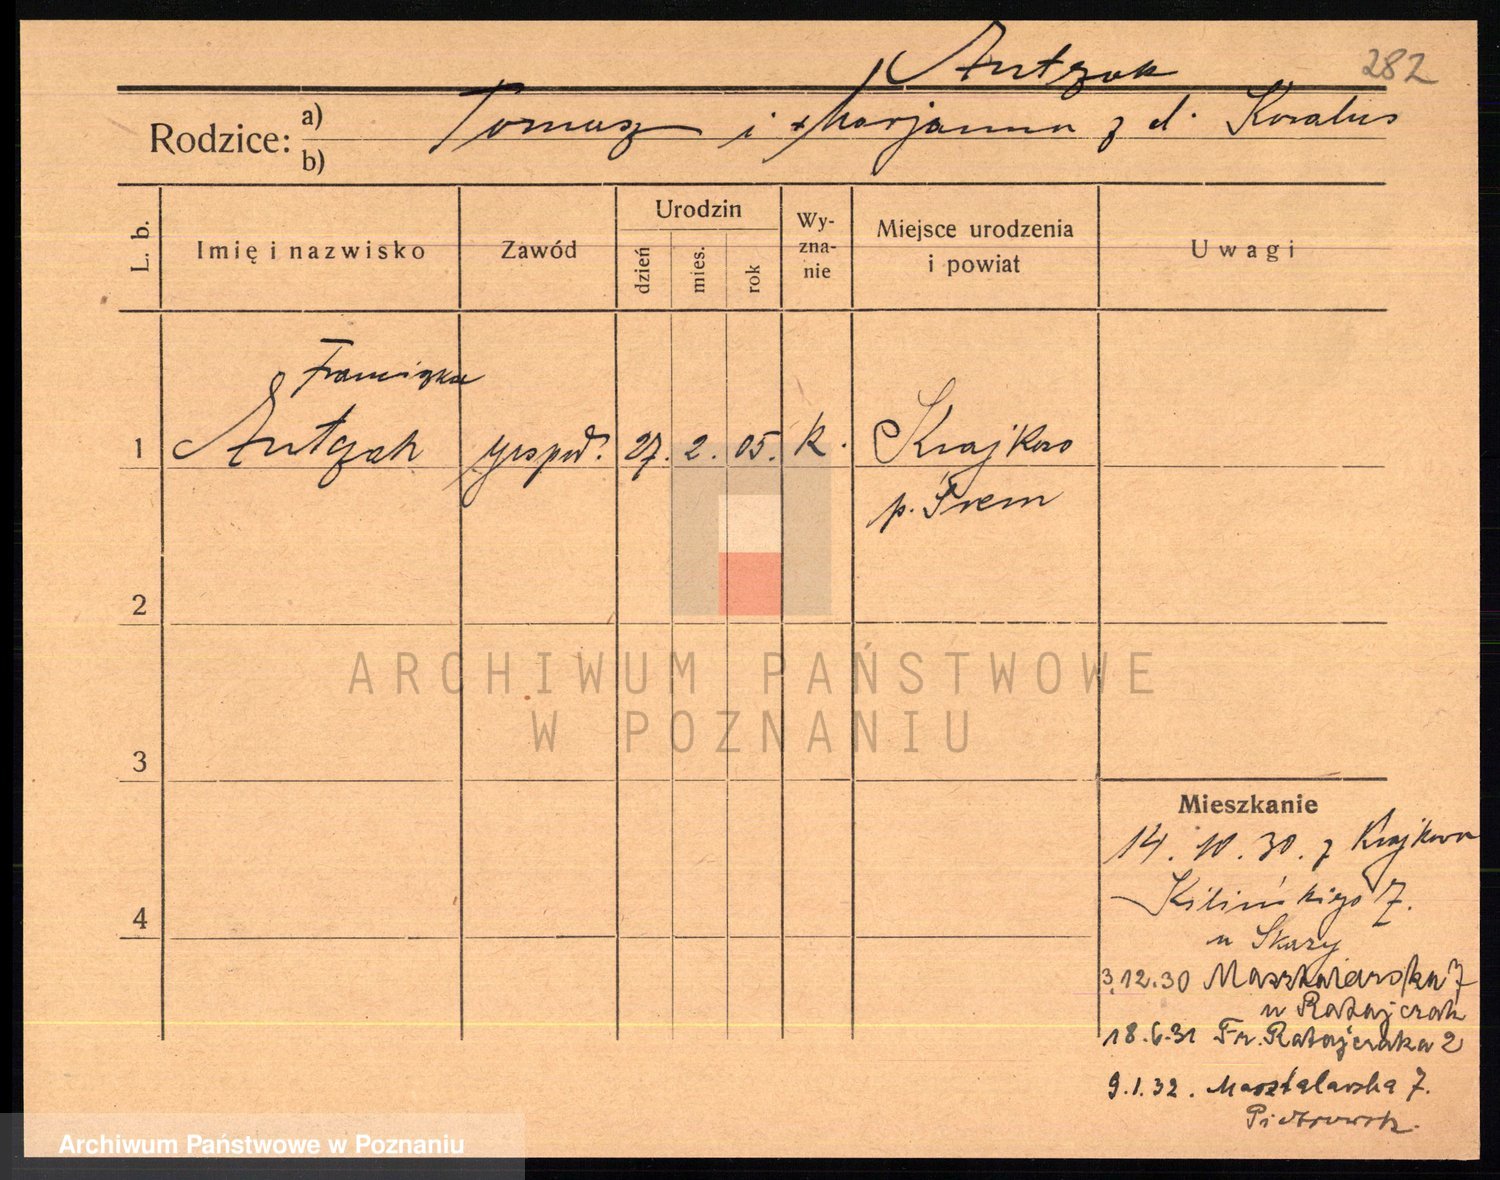 Antczak 282
Rodzice: a) Tomasz i + Marjanna z d. Koralus
b)
L. b. Imię i nazwisko Zawód Urodzin dzień mies. rok Wy-zna-nie Miejsce urodzenia i powiat Uwagi
Franciszka
1 Antczak gospod. 27. 2. 05. k. Krajkowo
p. Śrem
2
ARCHIWUM PAŃSTWOWE
W POZNANIU
3
Mieszkanie
14. 10. 30. z Krajkowa
Kilińskiego 7.
4
u Skazy
3.12.30 Masztalarska 7
u Ratajczak
18.6.31 Fr. Ratajczaka 2
9.1.32. Masztalarska 7.
Piotrowsk.
Archiwum Państwowe w Poznaniu